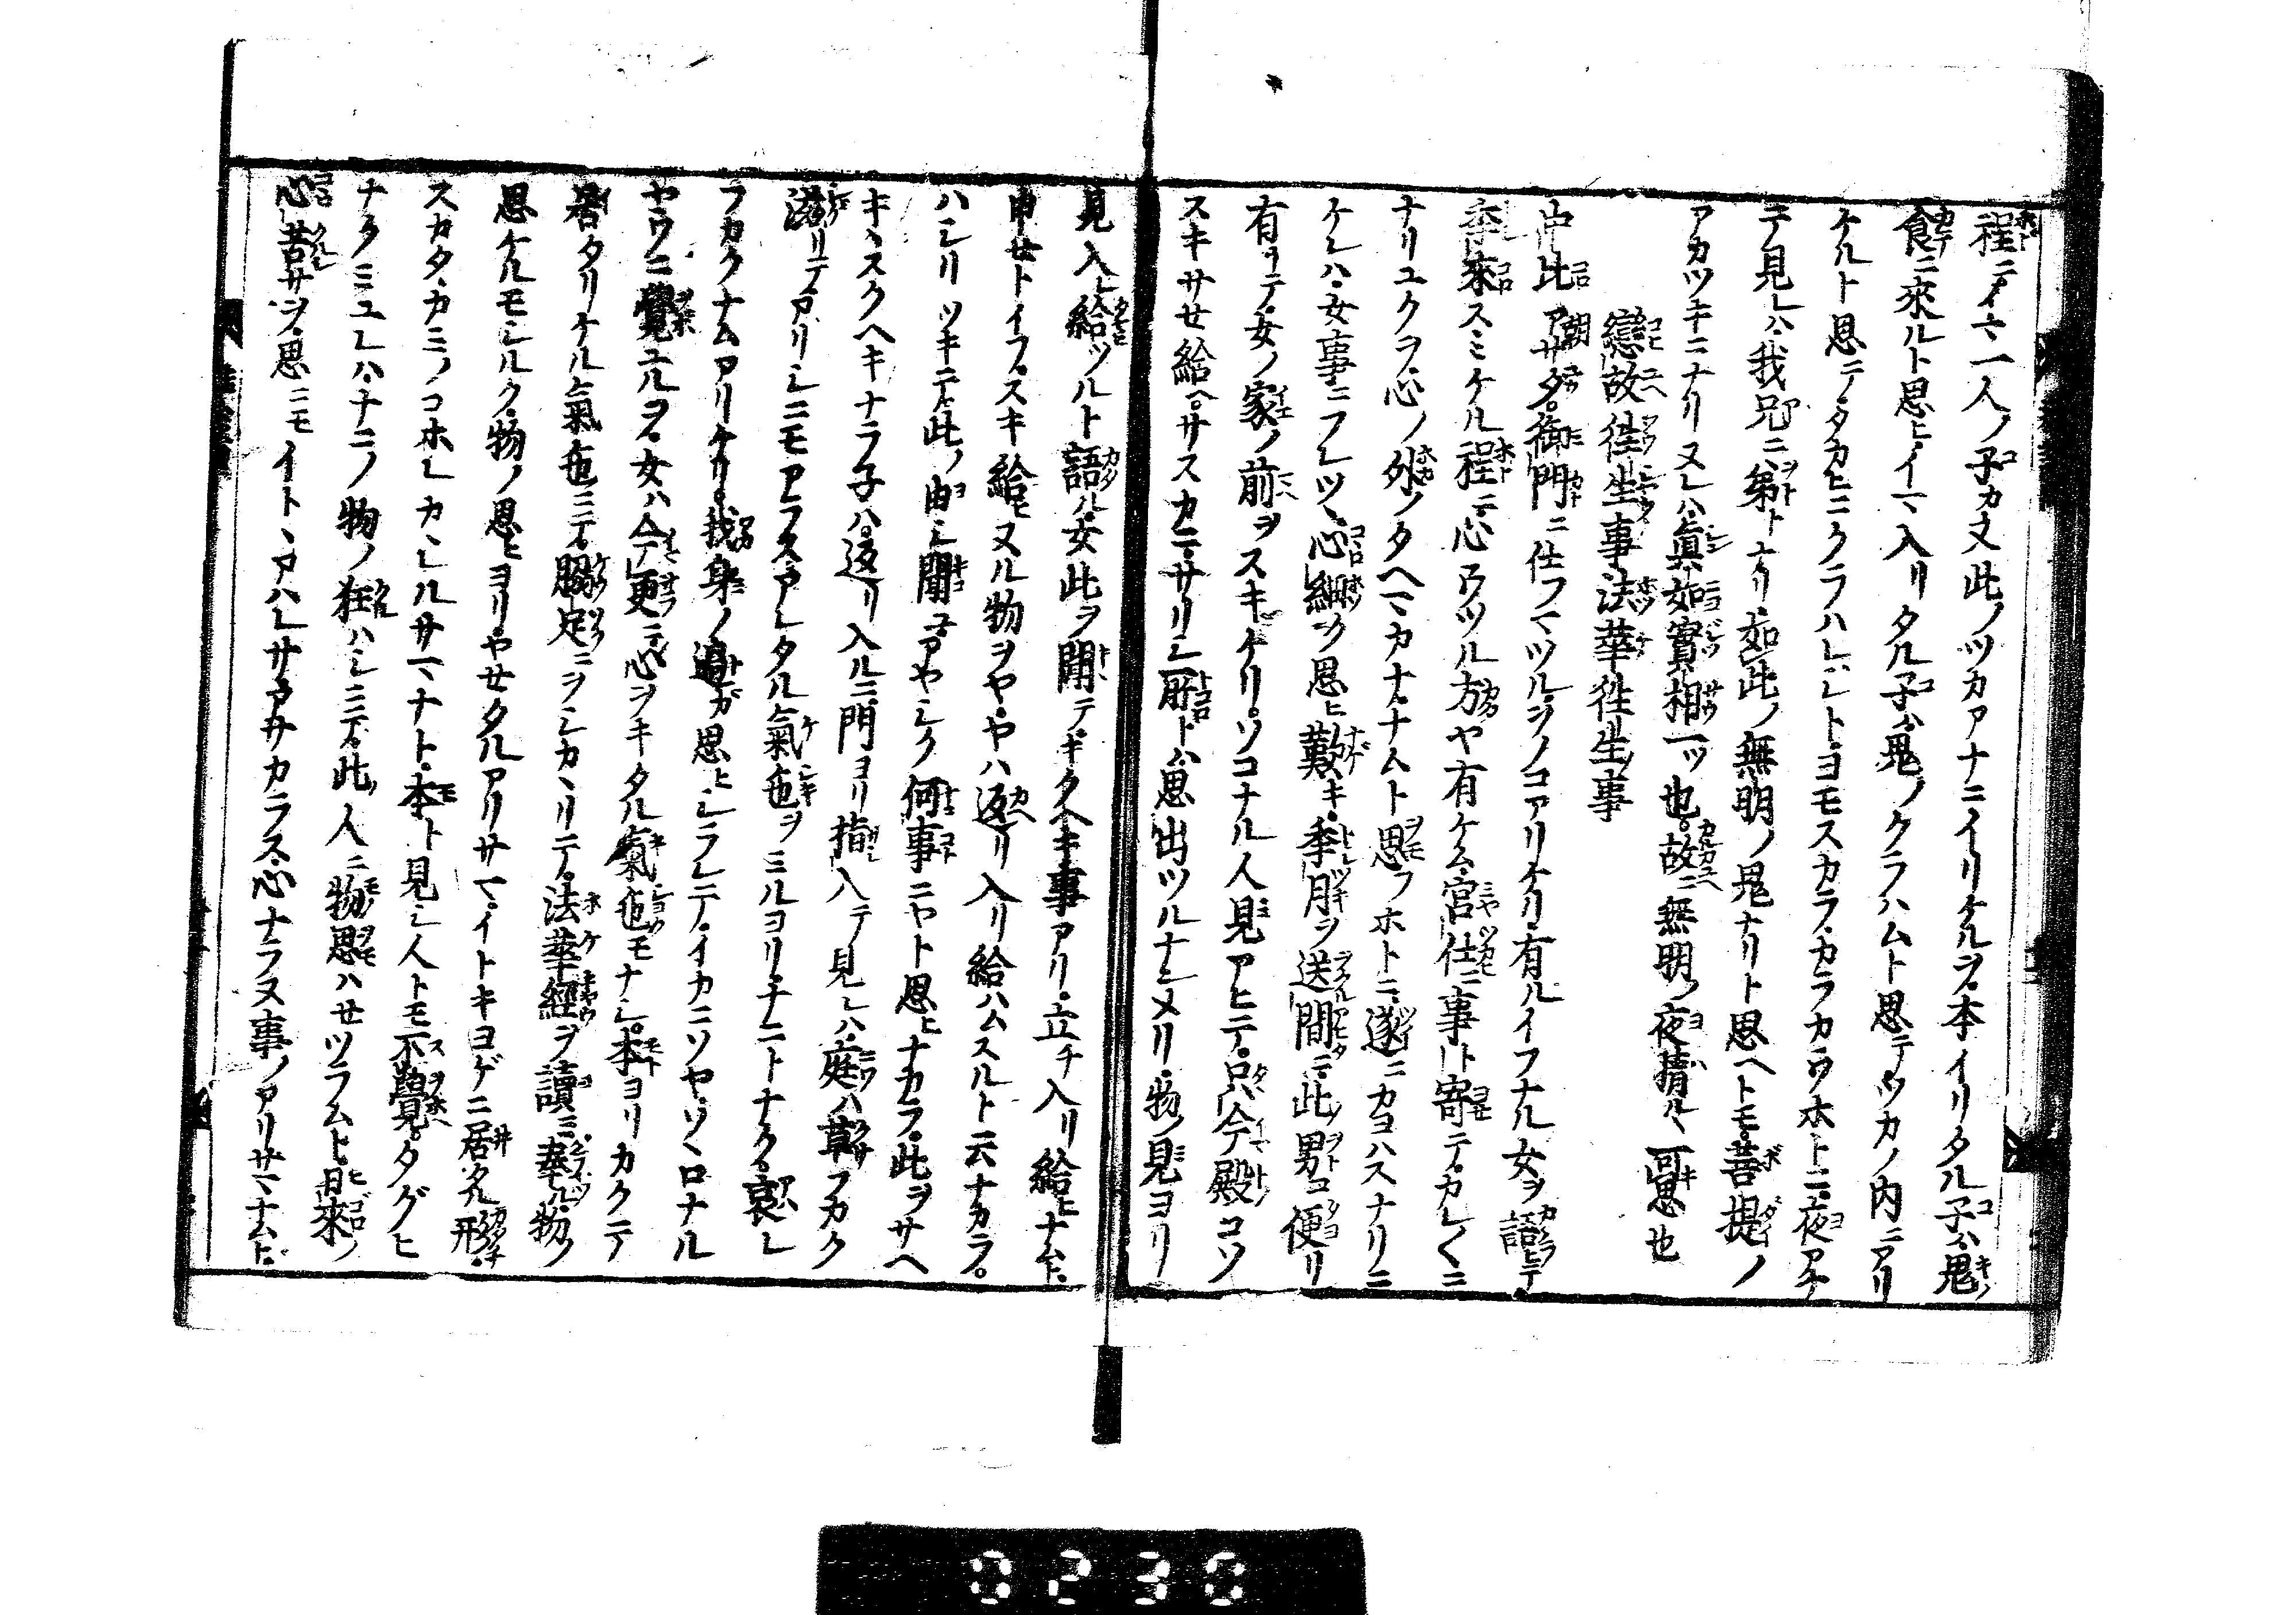 程ニイマ一人ノ子カ又此ノツカアナニイリケルヲ本イリタル子ハ鬼ノ
食ニ來ルト思ヒイマ入リタル子ハ鬼ノクラハムト思テツカノ内ニアリ
ケルト思テタカヒニクラハレシトヨモスカラカラカウホトニ夜アケ
テ見レハ我兄ニ弟トナリ如此ノ無明ノ鬼ナリト思ヘトモ菩提ノ
アカツキニナリヌレハ眞如實相一ツ也故ニ無明ノ夜 可思也
戀故往生事法華往生事
中比アサタ御門ニ仕フマツルヲノコアリケリ有ルイフナル女ヲ語ヒテ
季來スミケル程ニ心ウツル方ヤ有ケム宮仕ニ事ト寄テカレ〱ニ
ナリユクヲ心ノ外ノタヘマカナナムト思フホトニ遂ニカヨハスナリニ
ケレハ女事ニフレツヽ心細ク思ヒ歎キ季月ヲ送間ニ此ノ男コ便リ
有テ女ノ家ノ前ヲスキケリソコナル人見アヒテ只今殿コソ
スキサセ給ヘサスカニサリシ所トハ思出ツルナンメリ物見ヨリ
見入レ給ツルト語ル女此ヲ聞テキタヘキ事アリ立チ入リ給ヒナムト
申セトイフスキ給ヒヌル物ヲヤヤハ返リ入リ給ハムスルト云ナカラ
ハシリツキテ此ノ由シ聞コアヤシク何事ニヤト思ヒナカラ此ヲサヘ
キヽスクヘキナラ子ハ返リ入ルニ門ヨリ指入テ見レハ庭ハ草フカク
滋リテアリシニモアラスアレタル氣色ヲミルヨリナニトナク哀レ
フカクナムアリケリ我身ノ過ガ思ヒシラレテイカニソヤソヽロナル
ヤウニ覺ユルヲ女ハ今更ニ心ヲキタル氣色モナシ本ヨリカクテ
居タリケル氣色ミニテ脇足ニヲシカヽリテ法華經ヲ讀ミ奉ル物ノ
思ケルモシルク物ノ思ヒヨリヤセタルアリサマイトキヨゲニ居タル形
スカタカミノコホレカヽレルサマナト本ト見シ人トモ不覺タグヒ
ナクミユレハナニノ物ノ狂ハシミニテ此人ニ物思ハセツラムト日來ノ
心苦サヲ思ニモイトヽアハレサアサカラス心ナラヌ事ノアリサマナムト